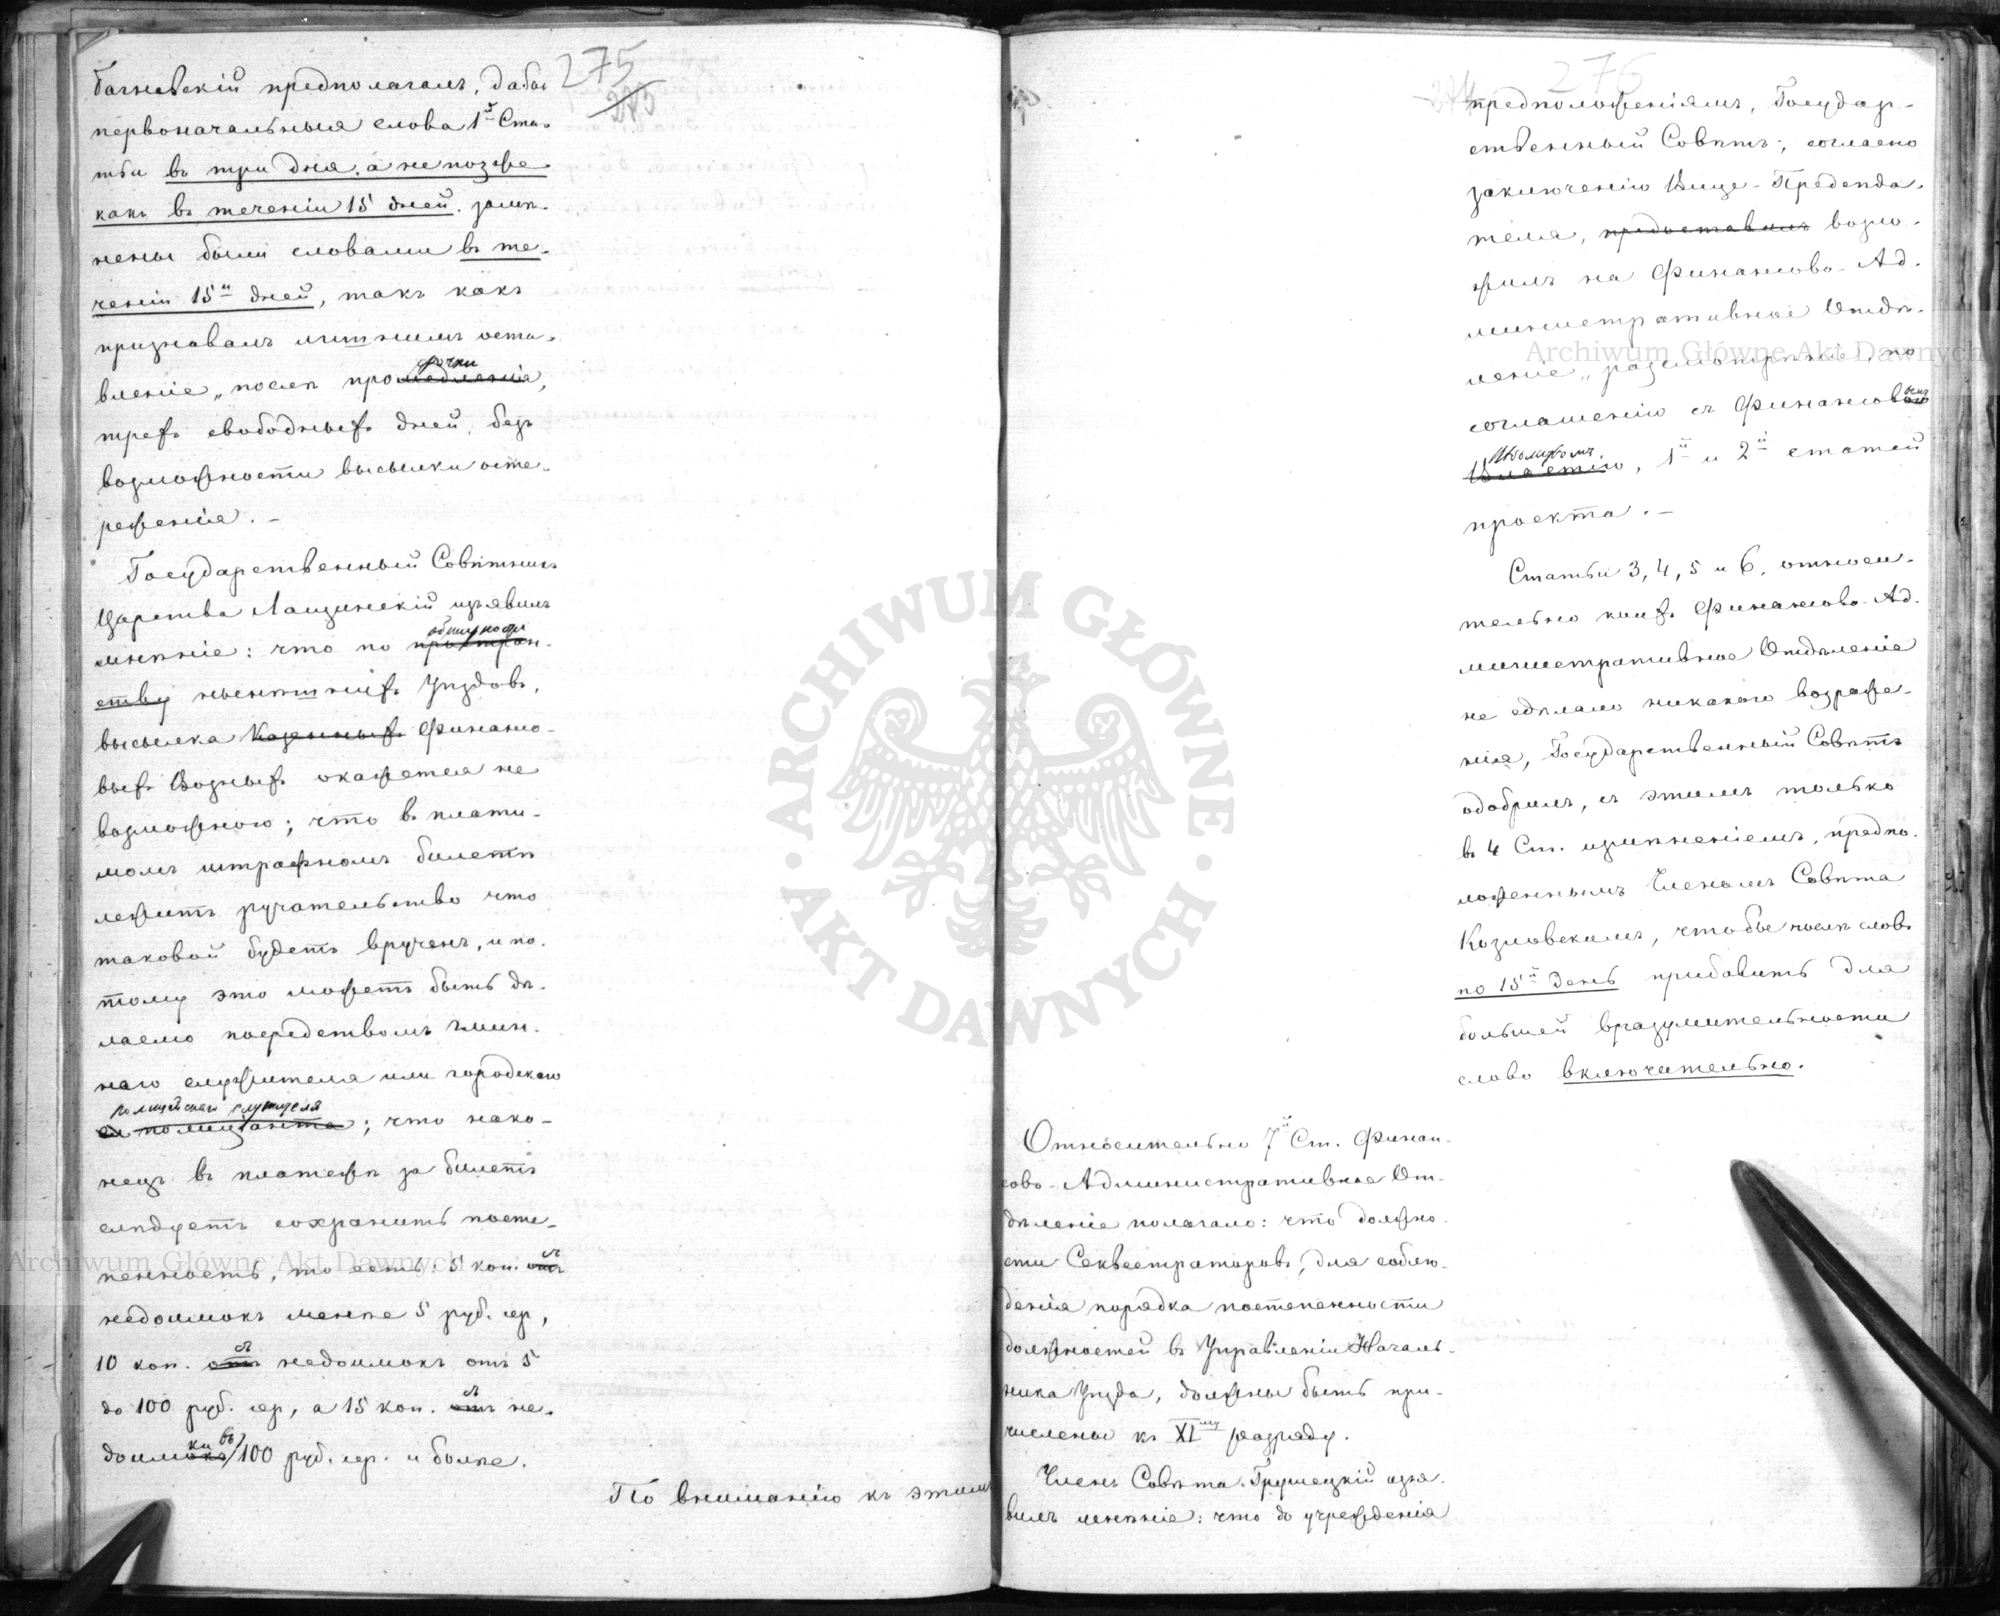 275
273
Багневскій предполагалъ, дабы
первоначальныя слова 1й Ста-
тьи въ три дня, а не позже
какъ въ теченіи 15 дней. замѣ-
нены были словами въ те-
ченіи 15и дней, такъ какъ
признавалъ лишнимъ оста-
вленіе „послѣ просрочки
промедленія,
трехъ свободныхъ дней, безъ
возможности высылки осте-
реженія. —
Государственный Совѣтникъ
Царства Лащинскій изъявилъ
мнѣніе: что по обширности
простран-
ству нынѣшнихъ Уѣздовъ,
высылка Казенныхъ Финансо-
выхъ Возныхъ окажется не
возможною; что въ плати-
момъ штрафномъ билетѣ
лежитъ ручательство что
таковой будетъ врученъ, и по-
тому это можетъ быть дѣ-
лаемо посредствомъ гмин-
наго служителя или городскаго
полицейскаго служителя
полиціанта; что нако-
нецъ въ платежѣ за билетъ
слѣдуетъ сохранить посте-
пенность, то есть: 5 коп. съ
отъ
недоимокъ менѣе 5 руб. сер,
10 коп. отъ съ недоимокъ отъ 5
до 100 руб. сер, а 15 коп. отъ съ не-
доимки въ 100 руб. сер. и болѣе.
По вниманію къ этимъ
276
274
предположеніямъ, Государ-
ственный Совѣтъ, согласно
заключенію Вице-Предсѣда-
теля, предоставилъ возло-
жилъ на Финансово-Ад-
министративное Отдѣ-
леніе „разсмотрѣніе, по
соглашенію съ Финансовымъ
Вѣдомствомъ,
Властію, 1й и 2й статей
проекта. —
Статьи 3, 4, 5 и 6, относи-
тельно коихъ Финансово-Ад-
министративное Отдѣленіе
не сдѣлало никакого возраже-
нія, Государственный Совѣтъ
одобрилъ, съ этимъ только
въ 4 Ст. измѣненіемъ, предпо-
ложеннымъ Членомъ Совѣта
Козловскимъ, чтобы послѣ словъ
по 15й день прибавить для
большей вразумительности
слово включительно.
Относительно 7й Ст. Финан-
сово-Административное От-
дѣленіе полагало: что должно-
сти Секвестраторовъ, для соблю-
денія порядка постепенности
должностей въ Управленіи Началь-
ника Уѣзда, должны быть при-
числены къ XIму разряду.
Членъ Совѣта Грушецкій изъя-
вилъ мнѣніе: что до учрежденія
Archiwum Główne Akt Dawnych
Archiwum Główne Akt Dawnych
ARCHIWUM GŁÓWNE
AKT DAWNYCH